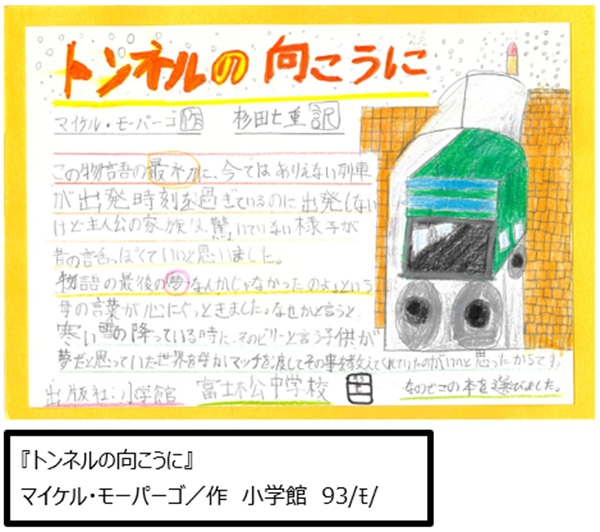 トンネルの向こうに
マイケル・モーパーゴ 作 杉田七重 訳
この物語の最初に、今ではありえない列車
が出発時刻を過ぎているのに出発しない
けど主人公の家族は、驚いていない様子が
昔の話っぽくていいと思いました。
物語の最後の夢なんかじゃなかったのよという
母の言葉が心にぐっときました。なぜかと言うと
寒い雪の降っている時に、そのビリーと言う子供が
夢だと思っていた世界を母がマッチを渡してその事を教えてくれていたのがいいと思ったからです。
出版社:小学館 富士松中学校 なのでこの本を選びました。
『トンネルの向こうに』
マイケル・モーパーゴ／作 小学館 93/モ/